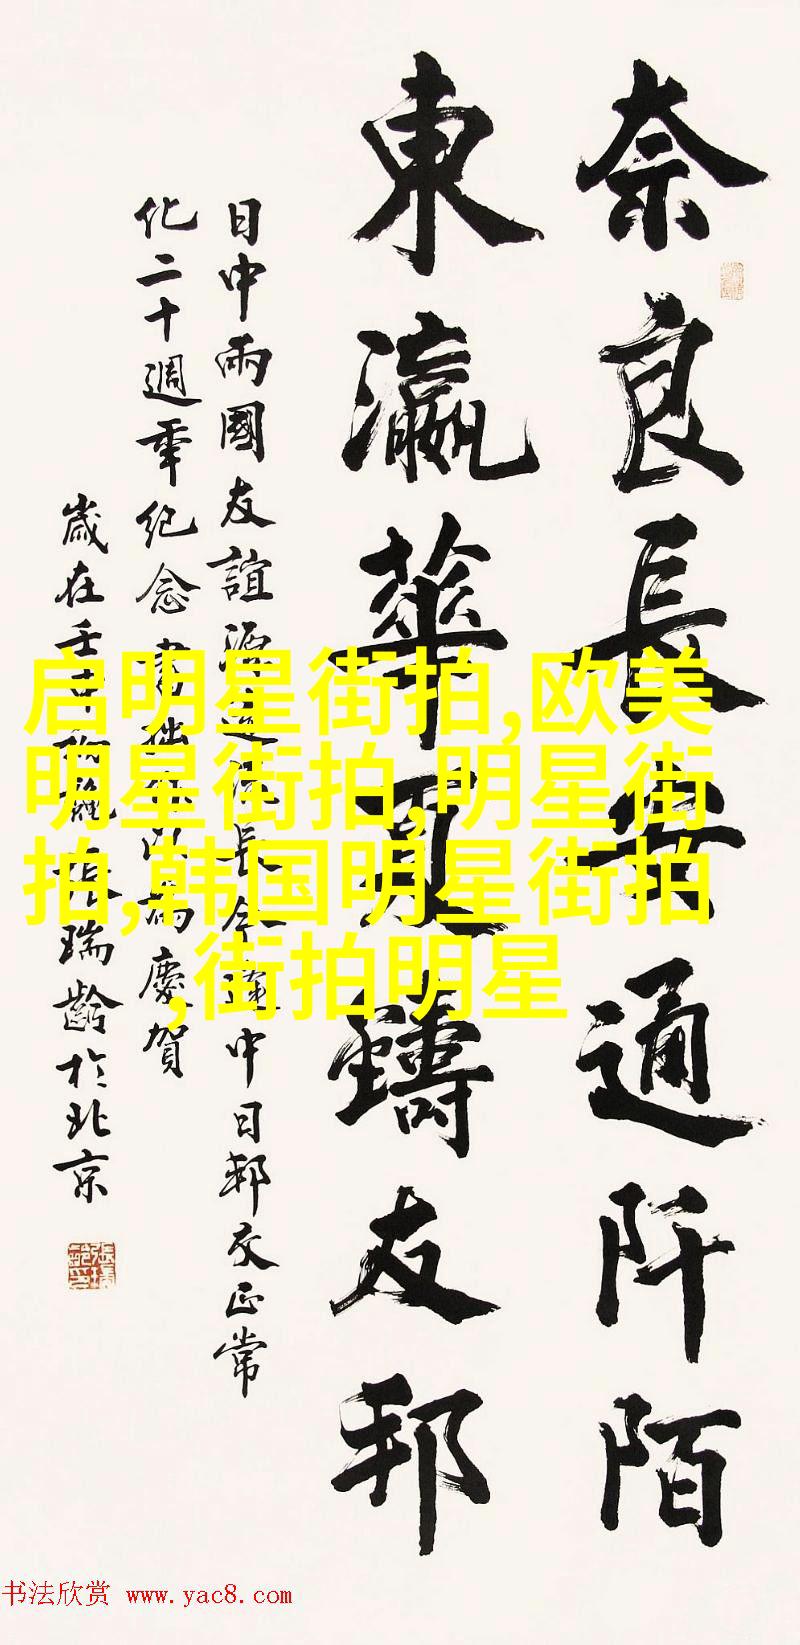 奈良長安通阡陌
東瀛華夏鑄友邦
日中兩國友誼源遠流長今逢中日邦交正常
化二十週年紀念書拙作以為慶賀
歲在壬申 張瑞齡於北京
启明星街拍,欧美
明星街拍,明星街
拍,韩国明星街拍
,街拍明星
书法欣赏 www.yac8.com